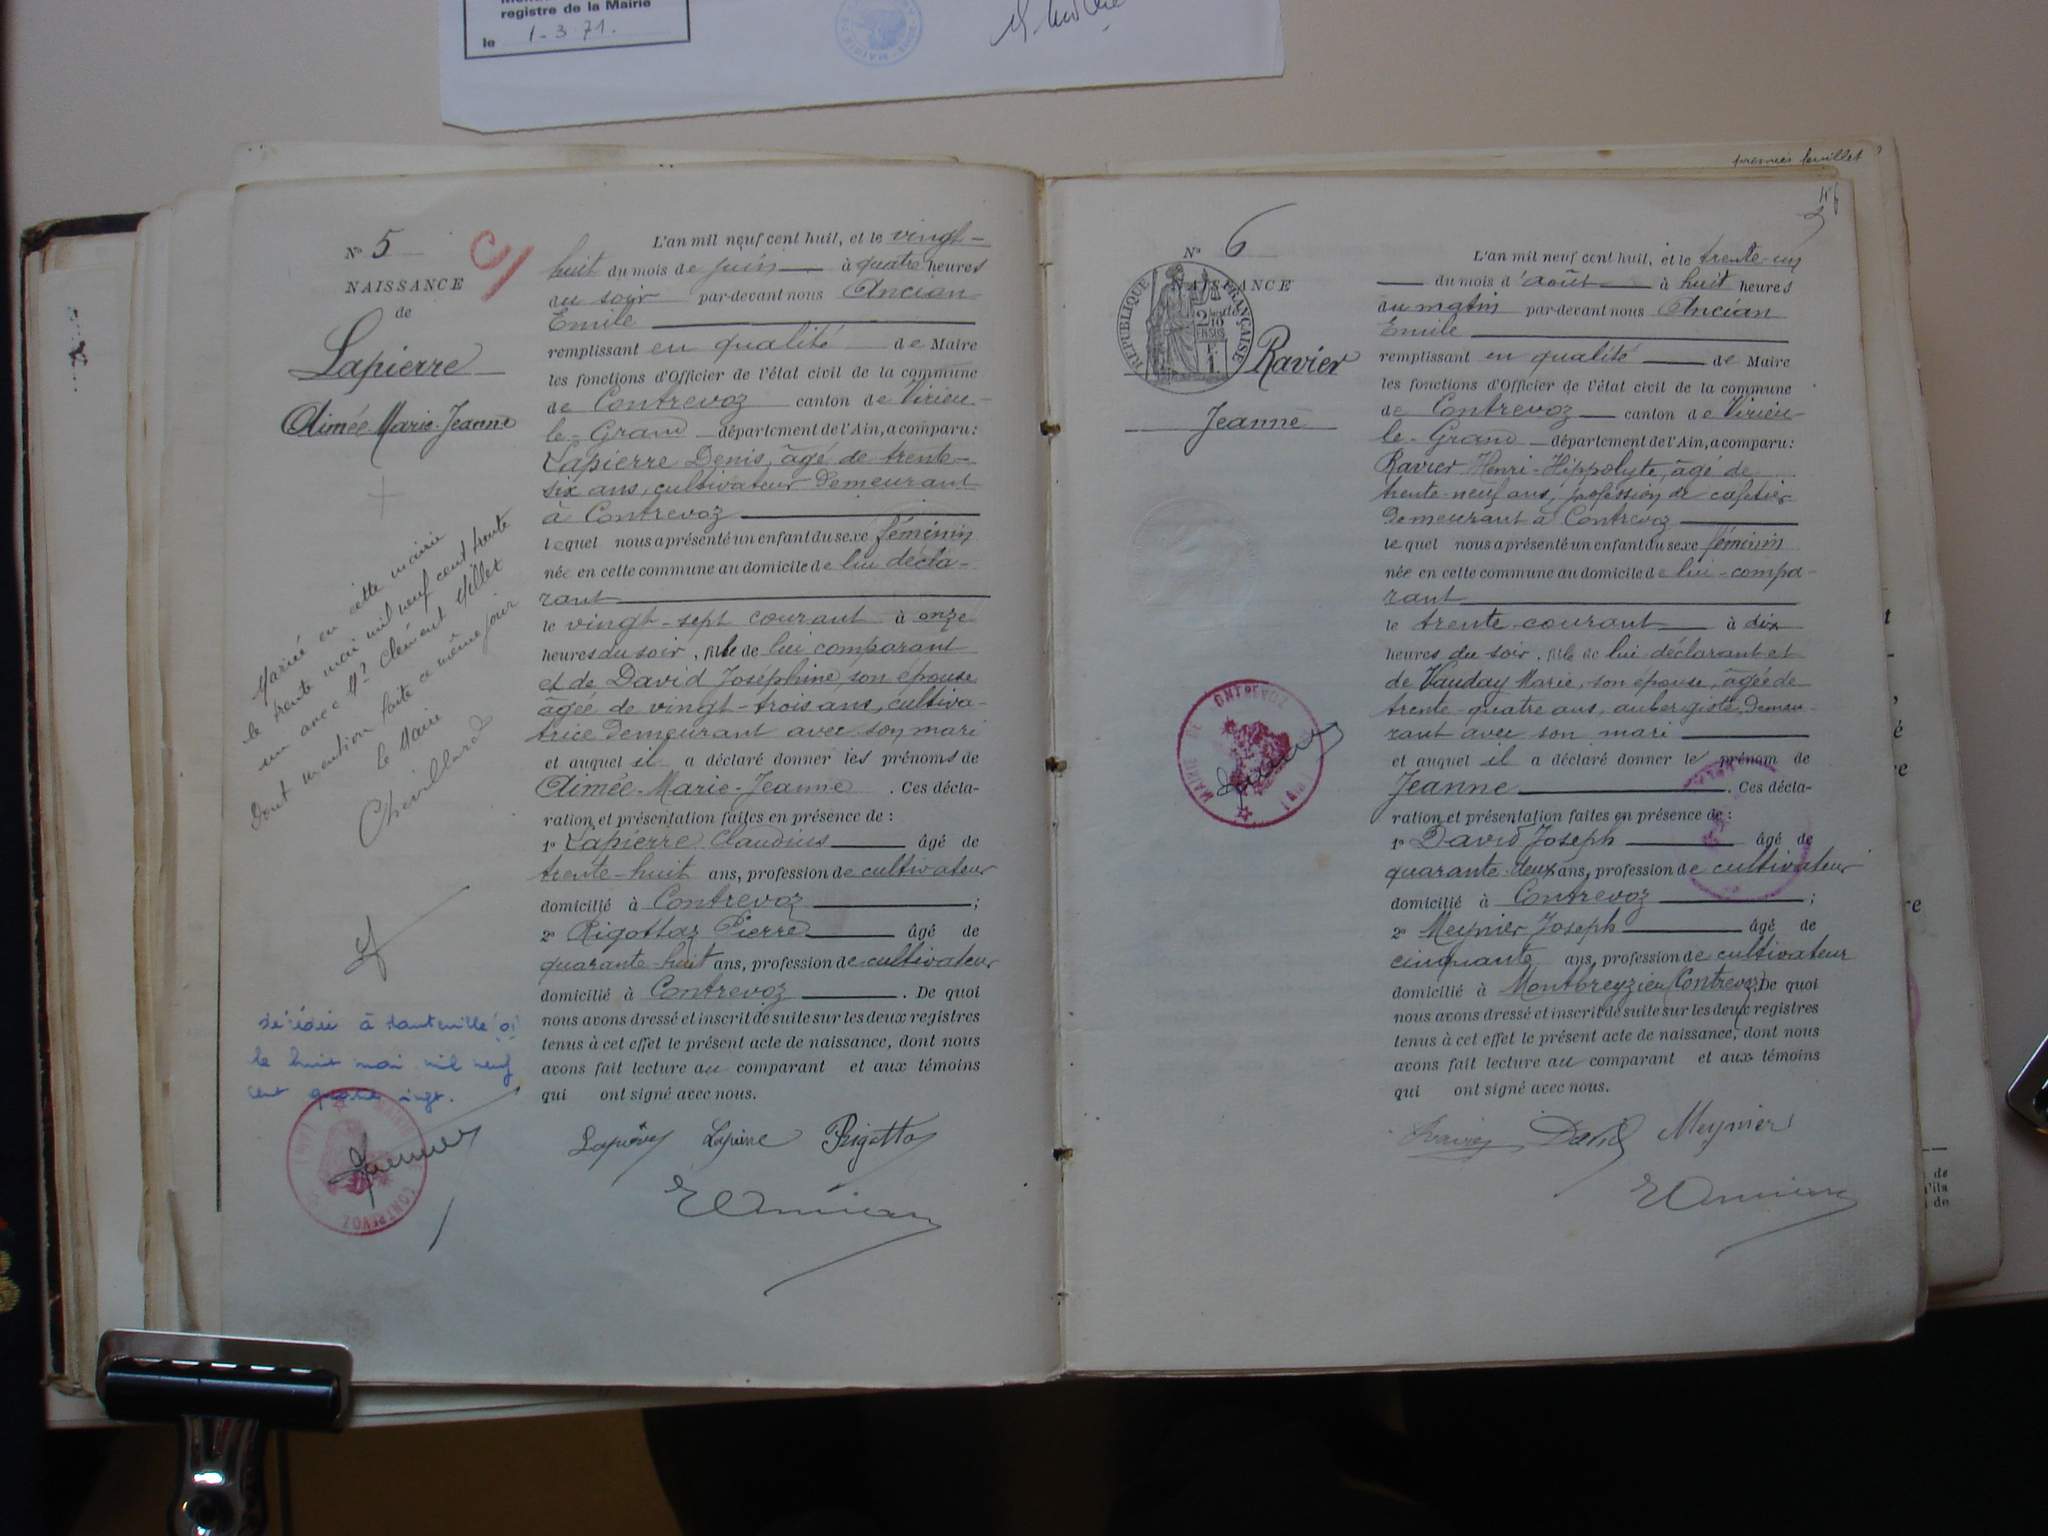 registre de la Mairie
le 1-3-71.
premier feuillet
Nº 5
NAISSANCE
de
Lapierre
Aimée-Marie-Jeanne
Mariée en cette mairie
le trente mai mil neuf cent trente
un avec Mr Clément Millet
Dont mention faite ce même jour
Le Maire
Chevillard
décédée à Hauteville
le huit mai mil neuf
cent quatre vingt.
MAIRIE DE CONTREVOZ (AIN)
L'an mil neuf cent huit, et le vingt-
huit du mois de juin à quatre heures
du soir par-devant nous Ancian
Emile
remplissant en qualité de Maire
les fonctions d'Officier de l'état civil de la commune
de Contrevoz canton de Virieu-
le-Grand département de l'Ain, a comparu:
Lapierre Denis, âgé de trente-
six ans, cultivateur demeurant
à Contrevoz
lequel nous a présenté un enfant du sexe féminin
née en cette commune au domicile de lui décla-
rant
le vingt-sept courant à onze
heures du soir, fille de lui comparant
et de David Joséphine, son épouse
âgée de vingt-trois ans, cultiva-
trice demeurant avec son mari
et auquel il a déclaré donner les prénoms de
Aimée-Marie-Jeanne. Ces décla-
ration et présentation faites en présence de :
1º Lapierre Claudius âgé de
trente-huit ans, profession de cultivateur
domicilié à Contrevoz ;
2º Rigottaz Pierre âgé de
quarante-huit ans, profession de cultivateur
domicilié à Contrevoz. De quoi
nous avons dressé et inscrit de suite sur les deux registres
tenus à cet effet le présent acte de naissance, dont nous
avons fait lecture au comparant et aux témoins
qui ont signé avec nous.
Lapierre Lapierre Rigottaz
E Ancian
Nº 6
NAISSANCE
de
RÉPUBLIQUE FRANÇAISE
2/10 EN SUS
Ravier
Jeanne
MAIRIE DE CONTREVOZ (AIN)
L'an mil neuf cent huit, et le trente-un
du mois d'août à huit heures
du matin par-devant nous Ancian
Emile
remplissant en qualité de Maire
les fonctions d'Officier de l'état civil de la commune
de Contrevoz canton de Virieu-
le-Grand département de l'Ain, a comparu:
Ravier Henri-Hippolyte, âgé de
trente-neuf ans, profession de cafetier
demeurant à Contrevoz
lequel nous a présenté un enfant du sexe féminin
née en cette commune au domicile de lui-compa-
rant
le trente courant à dix
heures du soir, fille de lui déclarant et
de Vauday Marie, son épouse, âgée de
trente-quatre ans, aubergiste, demeu-
rant avec son mari
et auquel il a déclaré donner le prénom de
Jeanne. Ces décla-
ration et présentation faites en présence de :
1º David Joseph âgé de
quarante-deux ans, profession de cultivateur
domicilié à Contrevoz ;
2º Meynier Joseph âgé de
cinquante ans, profession de cultivateur
domicilié à Montbreyzieu (Contrevoz). De quoi
nous avons dressé et inscrit de suite sur les deux registres
tenus à cet effet le présent acte de naissance, dont nous
avons fait lecture au comparant et aux témoins
qui ont signé avec nous.
Ravier David Meynier
E Ancian